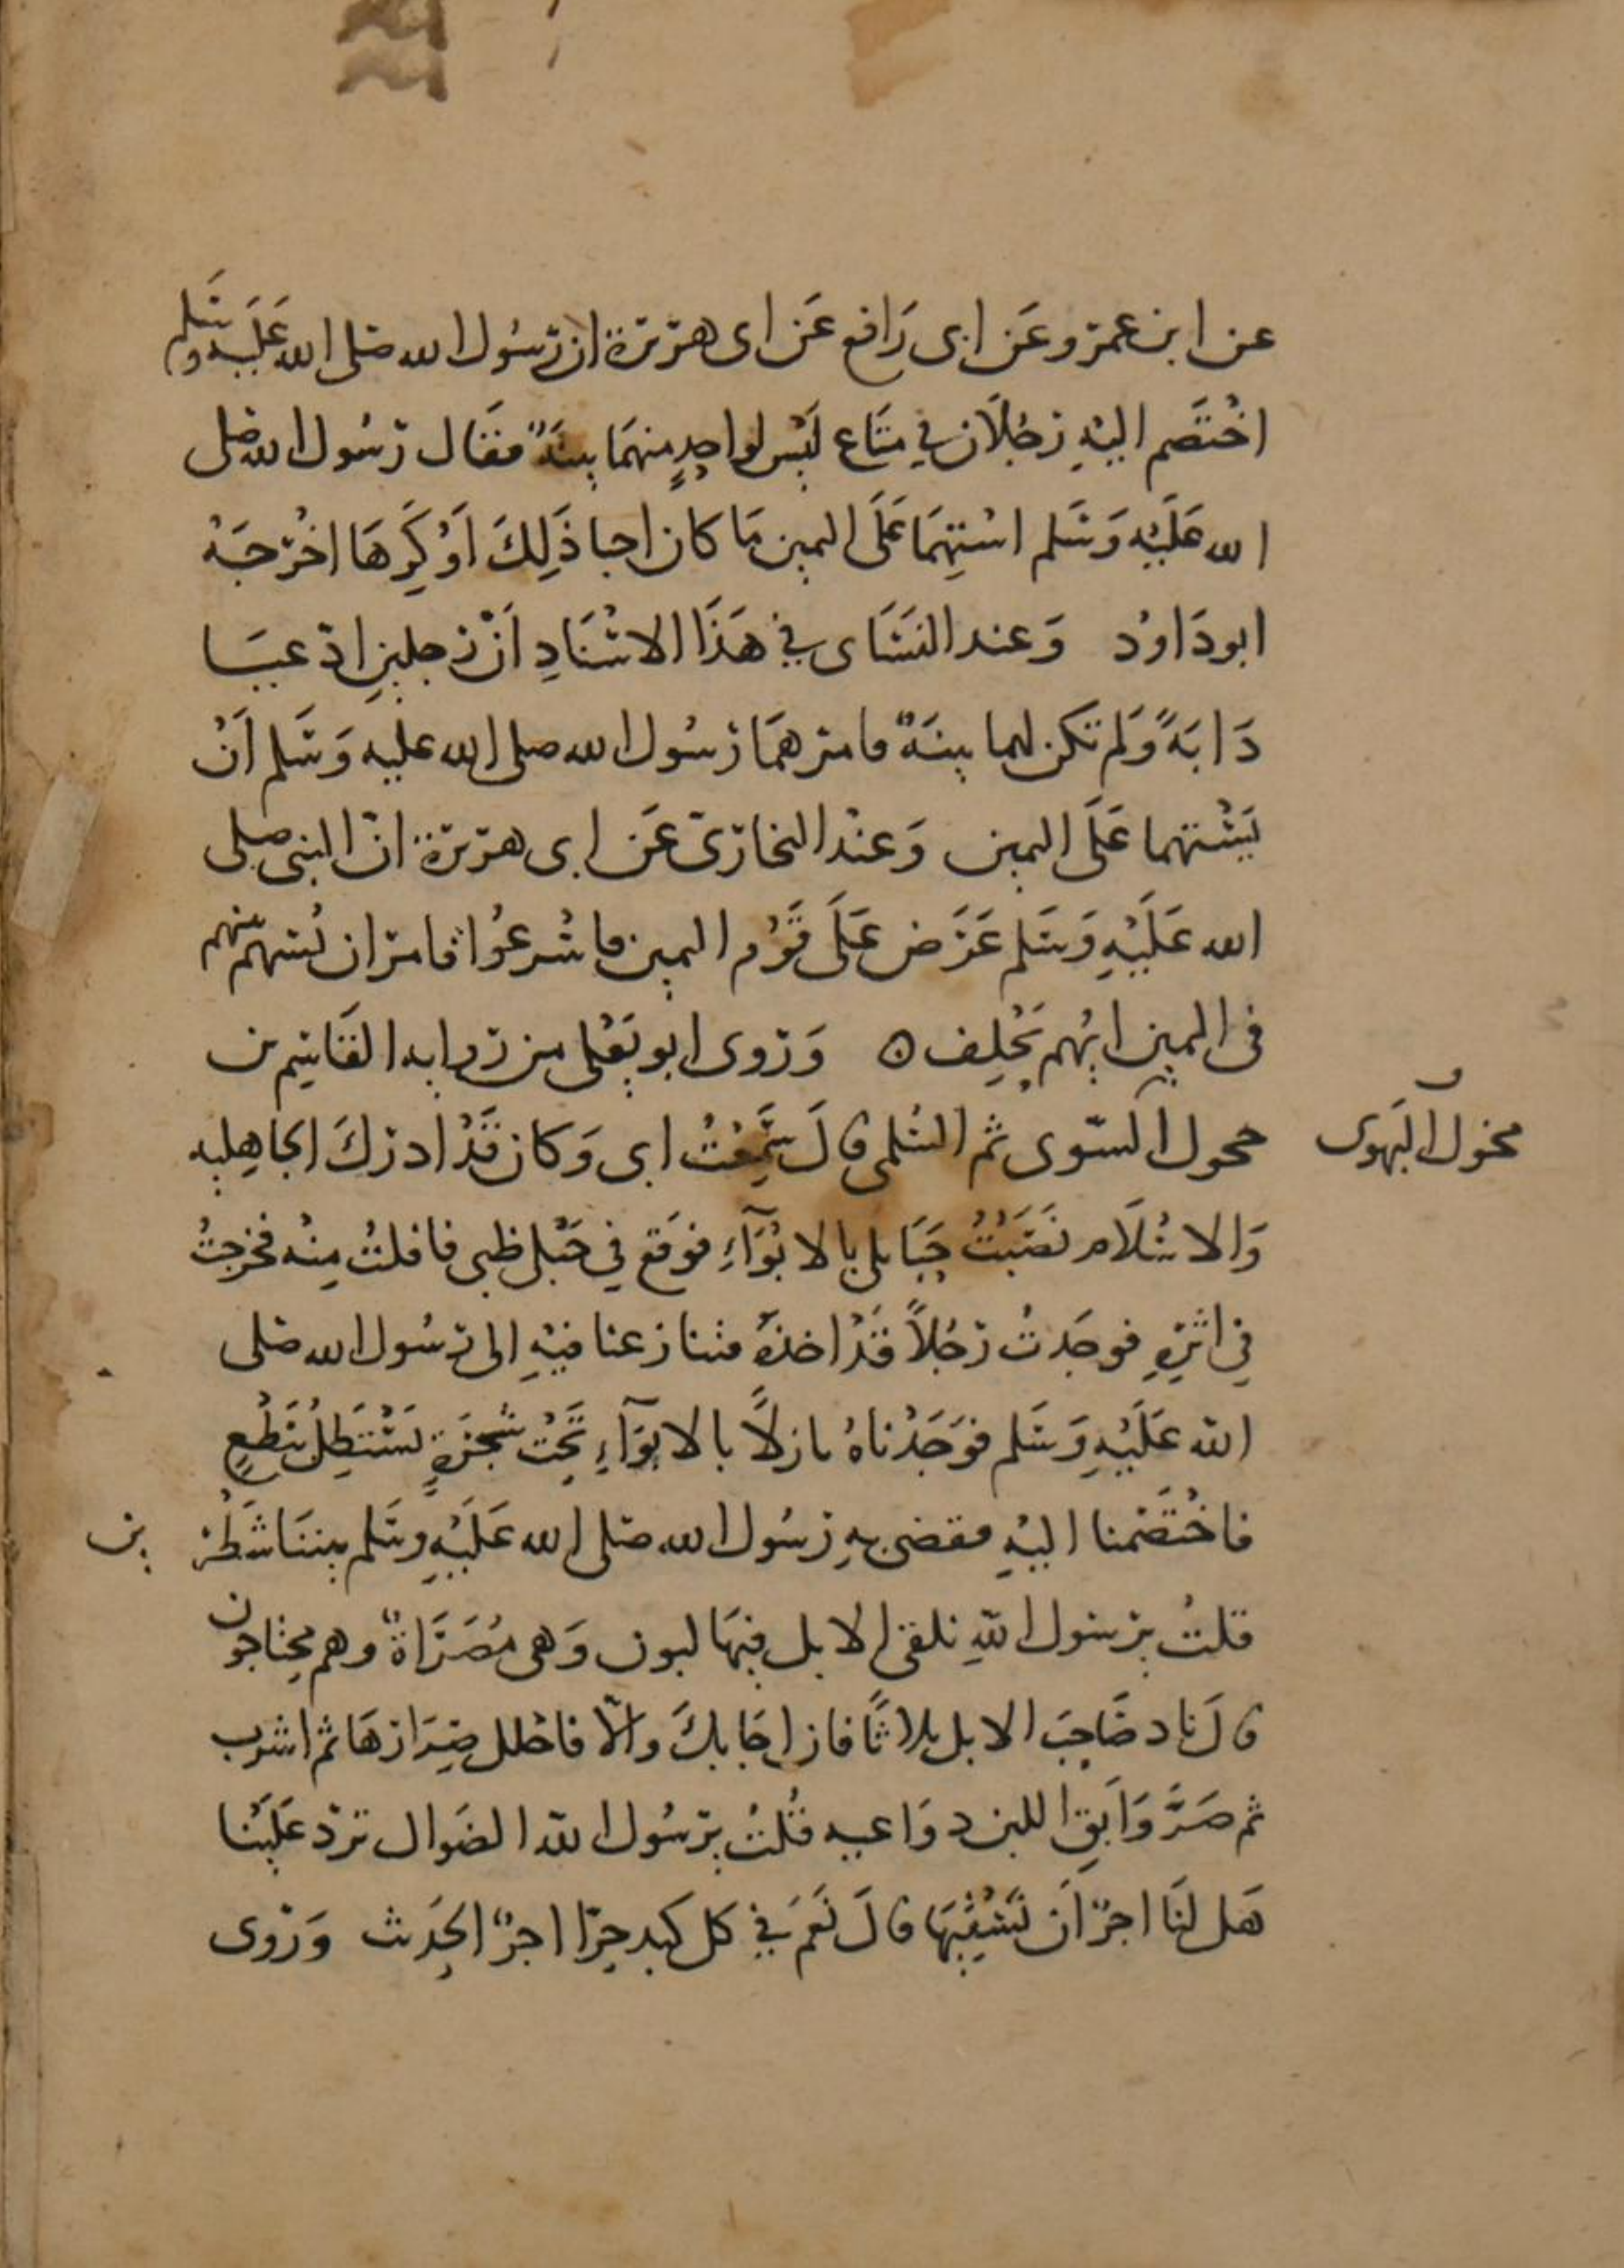 عن ابن عمرو عَن ابى رَافع عَن ابى هريرة ان رسُول الله صَلى الله عَلَيه وسَلم
اخْتَصَم اليْهِ رَجُلَان في مَتَاع ليْس لواحِدٍ منهمَا بينَةٌ فقَال رسُول الله صَلى
الله عَلَيْه وَسَلم اسْتهِمَا عَلَى اليمين مَا كان احبا ذَلِكَ اَوْ كَرِهَا اخْرَجَهُ
ابو دَاوُد وَعند النسَاى في هَذَا الاسْنَادِ اَنّ رجلينِ ادّعيَا
دَابَةً وَلم تكن لهما بينَةٌ فامرهمَا رسُول الله صلى الله عليه وَسَلم اَنْ
يَسْتهما عَلَى اليمين وَعنْد البخارىّ عَن ابى هريرة انّ النبى صلى
الله عَلَيْهِ وَسَلم عَرَض عَلَى قَوْم اليمين فاسْرعُوا فامر ان يُسْهم بينهم
فى اليمين ايُهم يَحْلِف ٥ وَروى ابو يَعْلى من رواية القَاسِم بن
محول السّوى ثم السُلمى قالَ سَمِعْتُ ابى وَكان قَدْ ادركَ الجاهلية
مخول البَهْوى
وَالاسْلَام نَصَبْتُ حَبَايلى بالابْوَآءِ فوقَع في حَبْل ظبى فافلتُ مِنْه فخرجتُ
في اثرِهِ فوجَدتُ رَجُلاً قَدْ اخذهُ فتنازعنا فيْهِ الى رسُول الله صَلى
الله عَلَيْهِ وَسَلم فوَجَدْناهُ نازلاً بالابوَآءِ تَحْتَ شَجَرَةٍ يَسْتَظِلُ بنَطْعٍ
فاخْتَصَمنا اليْهِ فقضى بهِ رسُول الله صَلى الله عَلَيْهِ وسَلم بيننَا شَطْر
ين
قلتُ يرسُول اللهِ نلقى الابل فيهَا لبون وَهى مُصَرَّاةٌ وهم محتاجون
قالَ ناد صَاحِبَ الابل ثلاثًا فان اجَابكَ والّا فاحْلل صِرَارهَا ثم اشرب
ثم صَرَّ وَابَقِ اللبن دوَاعيه قُلتُ يرسُول الله الضوَال ترد عَلَيْنا
هَل لنَا اجرٌ اَن نَسْقيهَا قالَ نَعَمْ في كل كبد حِرّا اجرٌ الحَديث وَروى